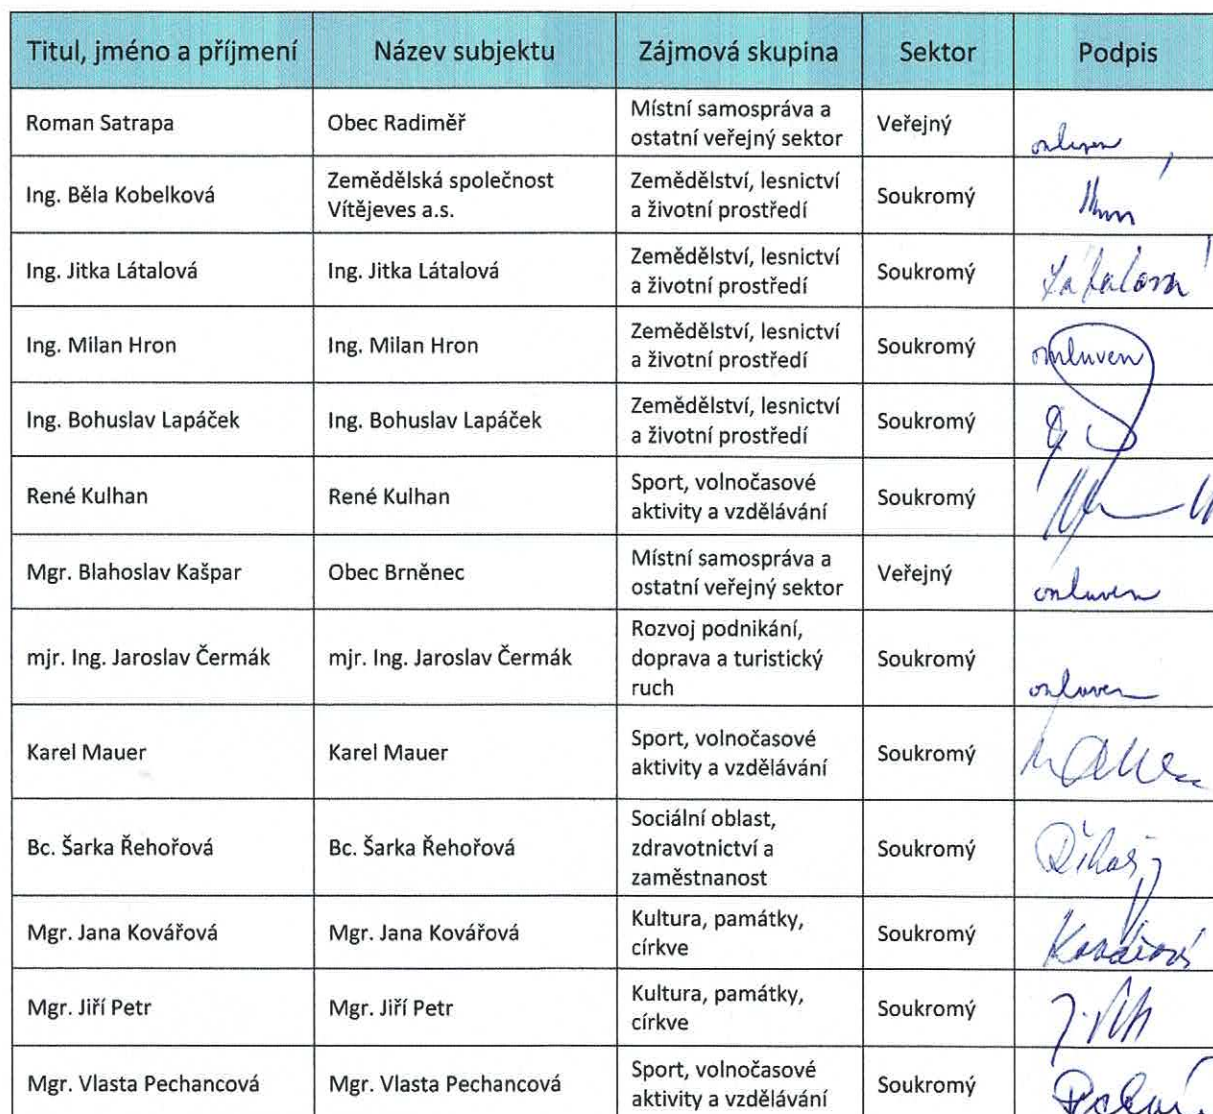 Titul, jméno a příjmení Název subjektu Zájmová skupina Sektor Podpis
Roman Satrapa Obec Radiměř Místní samospráva a
ostatní veřejný sektor Veřejný omluven
Ing. Běla Kobelková Zemědělská společnost
Vítějeves a.s. Zemědělství, lesnictví
a životní prostředí Soukromý
Ing. Jitka Látalová Ing. Jitka Látalová Zemědělství, lesnictví
a životní prostředí Soukromý Látalová
Ing. Milan Hron Ing. Milan Hron Zemědělství, lesnictví
a životní prostředí Soukromý omluven
Ing. Bohuslav Lapáček Ing. Bohuslav Lapáček Zemědělství, lesnictví
a životní prostředí Soukromý
René Kulhan René Kulhan Sport, volnočasové
aktivity a vzdělávání Soukromý
Mgr. Blahoslav Kašpar Obec Brněnec Místní samospráva a
ostatní veřejný sektor Veřejný omluven
mjr. Ing. Jaroslav Čermák mjr. Ing. Jaroslav Čermák Rozvoj podnikání,
doprava a turistický
ruch Soukromý omluven
Karel Mauer Karel Mauer Sport, volnočasové
aktivity a vzdělávání Soukromý
Bc. Šarka Řehořová Bc. Šarka Řehořová Sociální oblast,
zdravotnictví a
zaměstnanost Soukromý
Mgr. Jana Kovářová Mgr. Jana Kovářová Kultura, památky,
církve Soukromý Kovářová
Mgr. Jiří Petr Mgr. Jiří Petr Kultura, památky,
církve Soukromý
Mgr. Vlasta Pechancová Mgr. Vlasta Pechancová Sport, volnočasové
aktivity a vzdělávání Soukromý